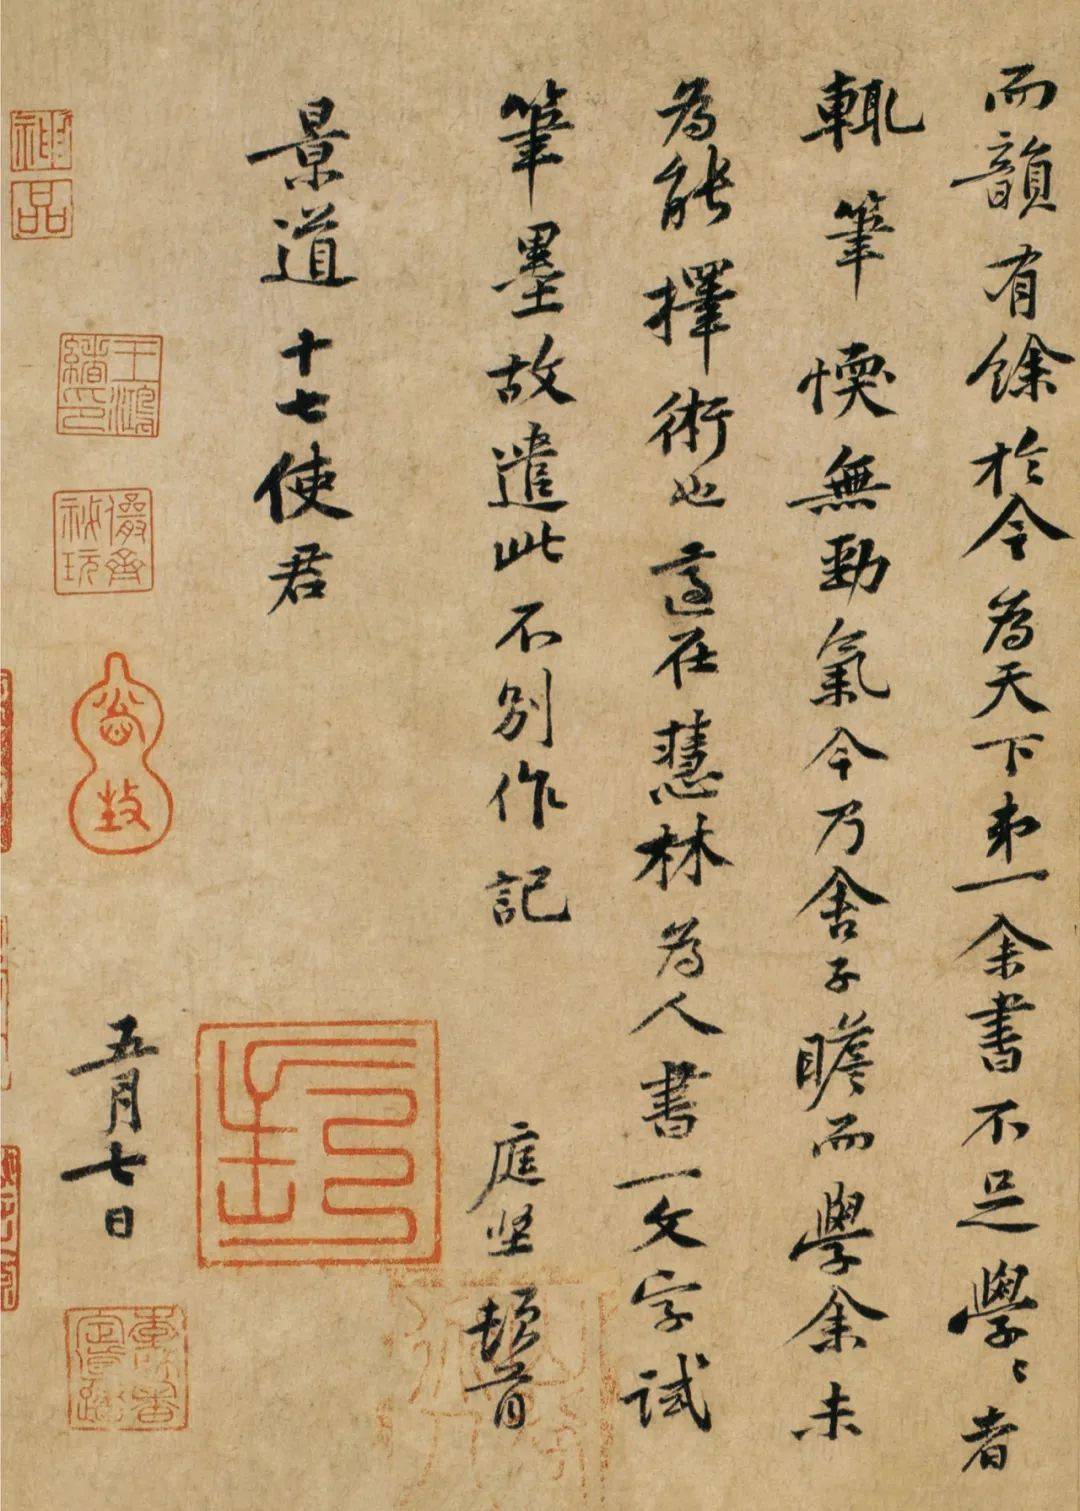 而韻有餘於今為天下第一余書不足學學者
輒筆愞無勁氣今乃舍子瞻而學余未
為能擇術也適在慧林為人書一文字試
筆墨故遣此不別作記
庭坚頓首
景道十七使君
五月七日
神品
王鴻緒印
儼齋秘玩